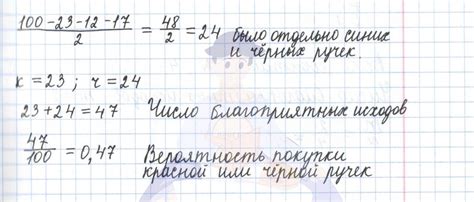 100-23-12-17/2 = 48/2 = 24 было отдельно синих
и чёрных ручек.
к = 23 ; ч = 24
23+24 = 47 Число благоприятных исходов
47/100 = 0,47 Вероятность покупки
красной или чёрной ручек